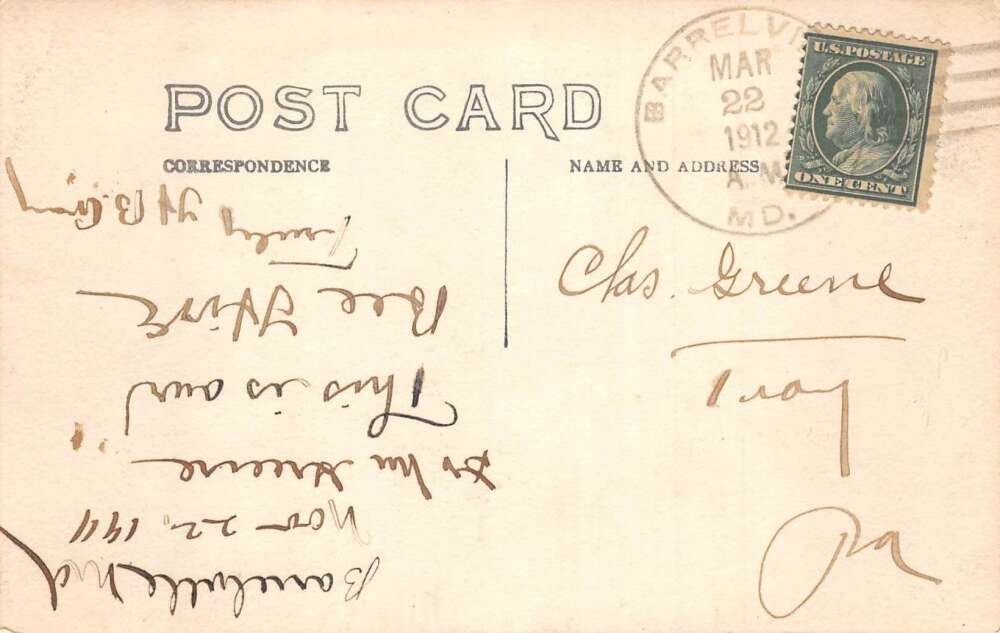 POST CARD
CORRESPONDENCE
NAME AND ADDRESS
BARRELVI
MAR
22
1912
A.M.
MD.
U.S. POSTAGE
ONE CENT
Chas. Greene
Troy
Pa
Barrelville Md
Nov 22, 1911
Dr Mr Greene
This is our
Bee Hive
Truly